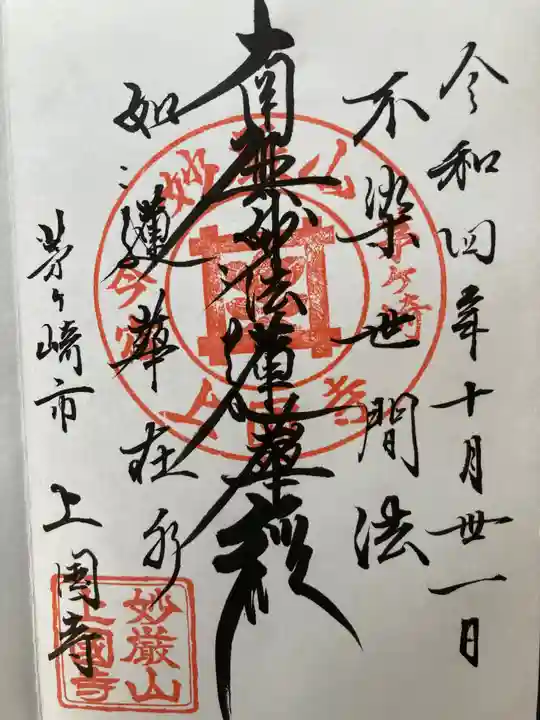 令和四年十月丗一日
不染世間法
南無妙法蓮華経
如蓮華在水
茅ヶ崎市 上国寺
妙厳山
上國寺
妙厳山
茅ヶ崎
上国寺